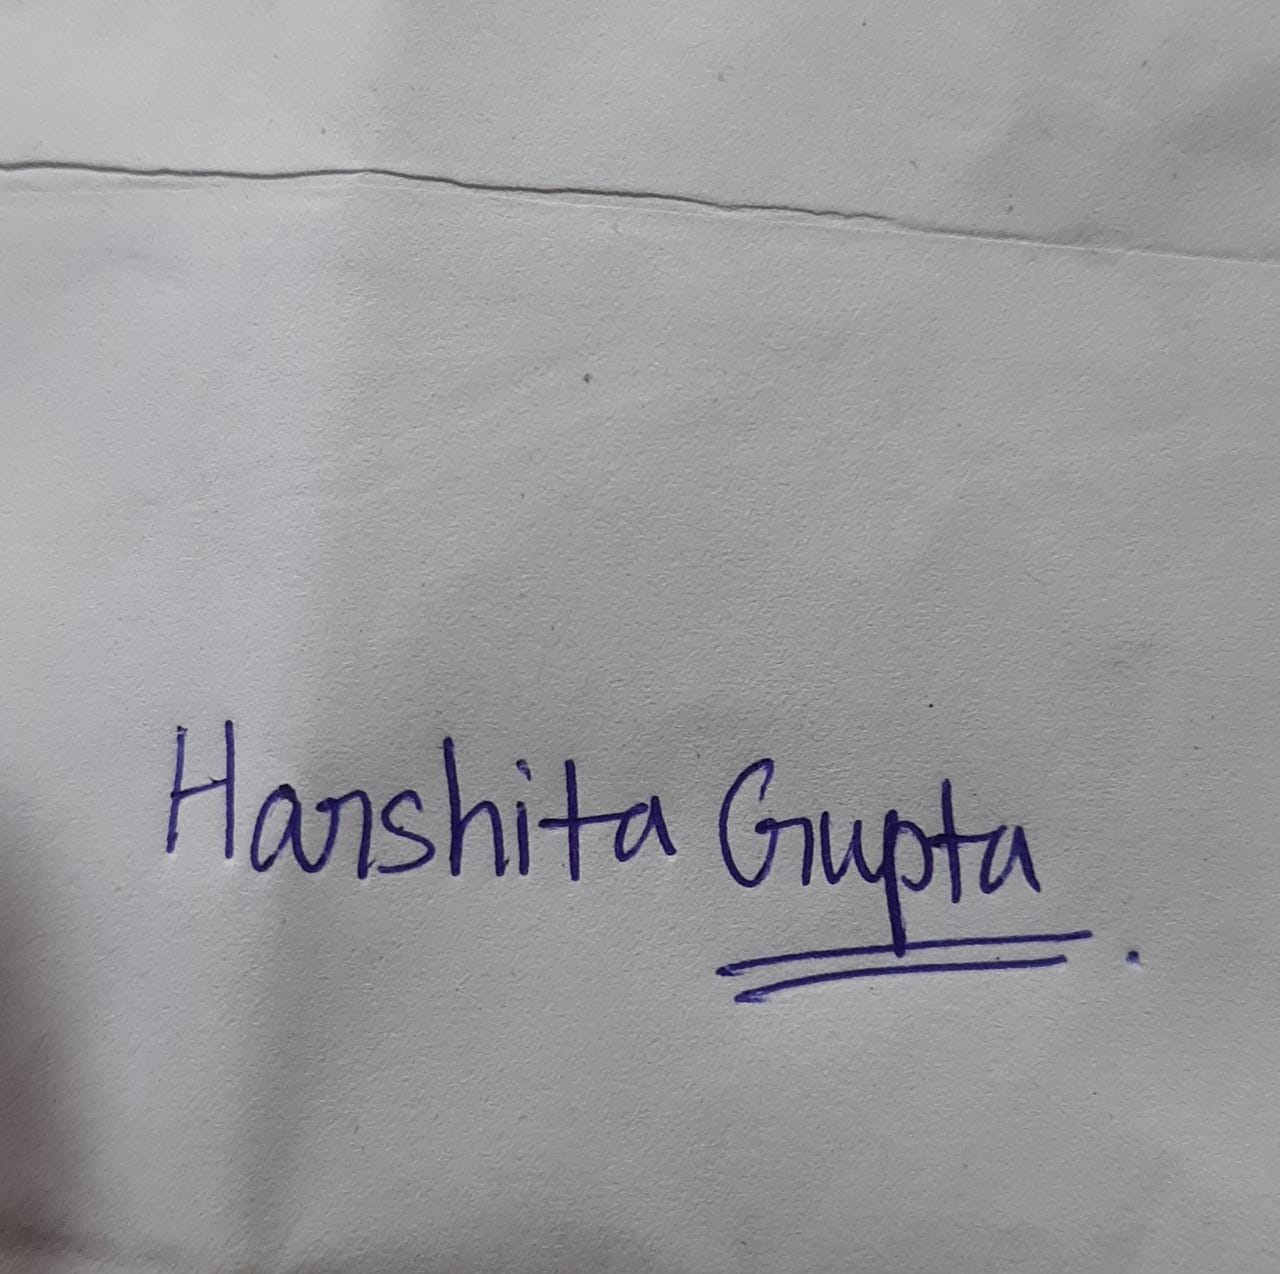 Harshita Gupta.